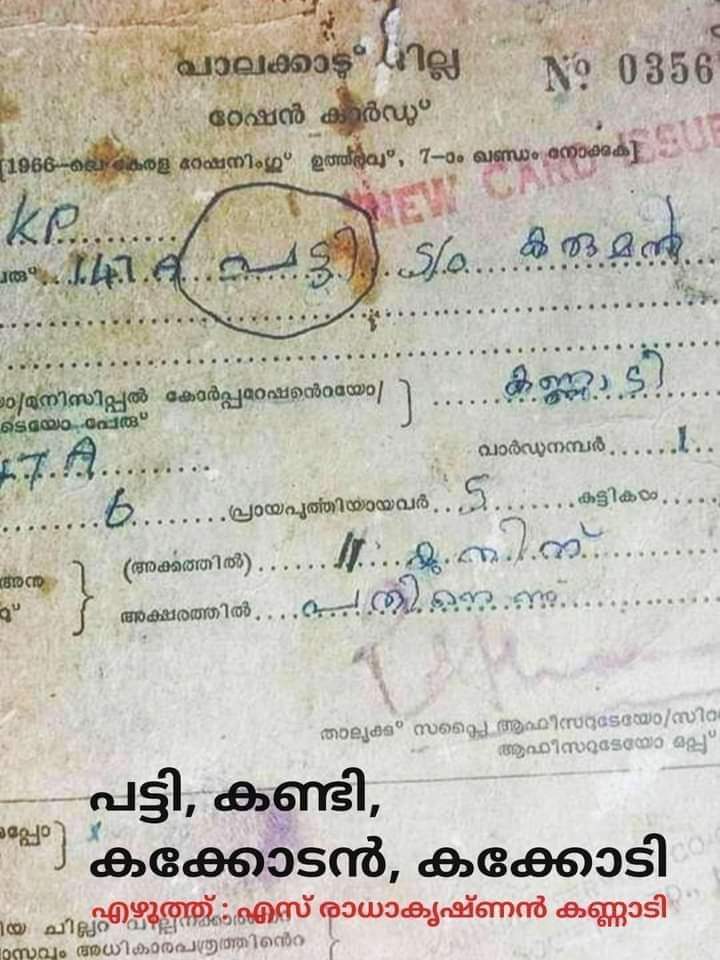 പാലക്കാട്ടു് ജില്ല
Nº 0356
റേഷൻ കാർഡു്
[1966—ലെ കേരള റേഷനിംഗു് ഉത്തരവു്, 7—ാം ഖണ്ഡം നോക്കുക]
NEW CARD ISSUE
KP
147 A പട്ടി S/o കരുമൻ
മുനിസിപ്പൽ കോർപ്പറേഷൻെറയോ/
ടെയോ പേരു്
കണ്ണാടി
7 A
വാർഡുനമ്പർ 1
6 പ്രായപൂർത്തിയായവർ 5 കുട്ടികൾ
(അക്കത്തിൽ) 11 യൂനിറ്റ്
അക്ഷരത്തിൽ പതിനൊന്നു
താലൂക്കു് സപ്ലൈ ആഫീസറുടേയോ/സിറ
ആഫീസറുടേയോ ഒപ്പു്
പട്ടി, കണ്ടി,
കക്കോടൻ, കക്കോടി
എഴുത്ത് : എസ് രാധാകൃഷ്ണൻ കണ്ണാടി
ചില്ലറ
അധികാരപത്രത്തിൻെറ